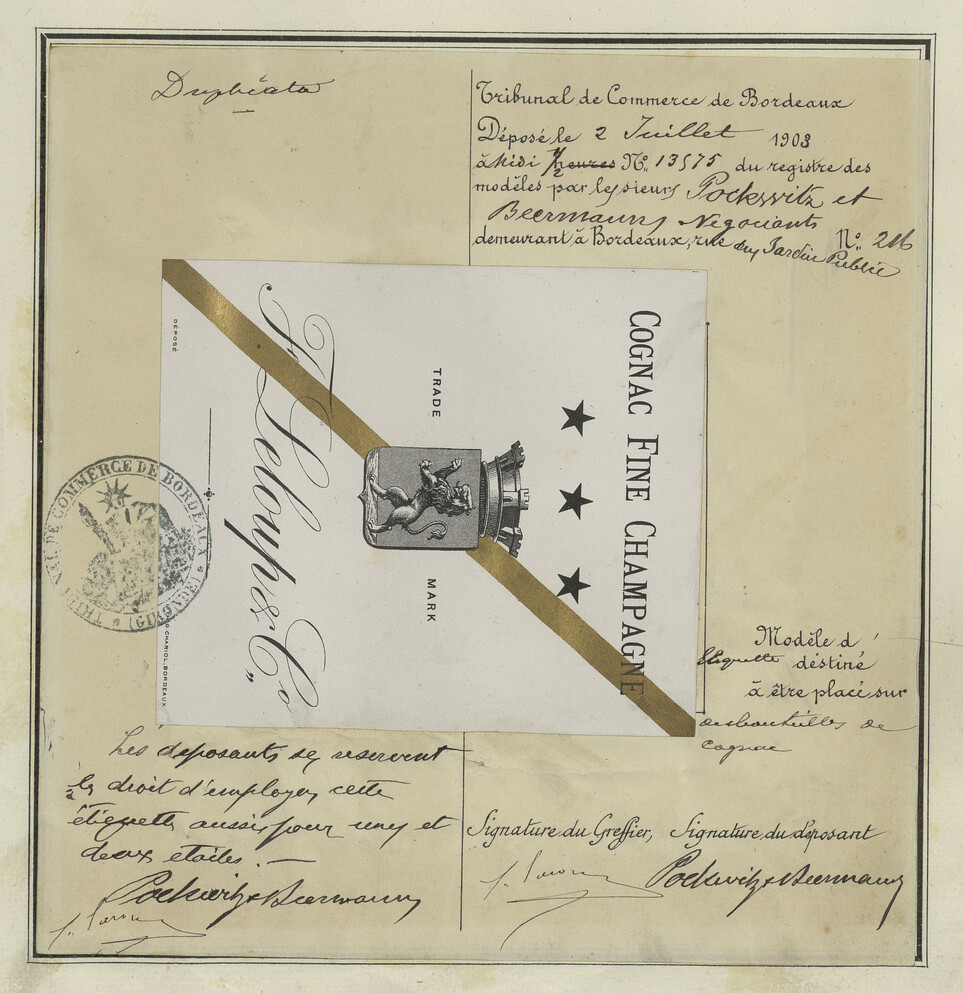 Duplicata
Tribunal de Commerce de Bordeaux
Déposé le 2 Juillet 1903
à Midi 1/2 heures No. 13575 du registre des
modèles par les sieurs Pockwitz et
Beermann, Negociants
demeurant à Bordeaux, rue du Jardin Public No. 216
COGNAC FINE CHAMPAGNE
TRADE MARK
& Co.
DÉPOSÉ
CHARIOL, BORDEAUX
TRIBUNAL DE COMMERCE DE BORDEAUX * (GIRONDE) *
Modèle d'
étiquette déstiné
à être placé sur
des bouteilles de
cognac
Les deposants se reservent
le droit d'employer cette
étiquette aussi pour une et
deux etoiles. —
Pockwitz & Beermann
Signature du Greffier, Signature du déposant
Pockwitz & Beermann